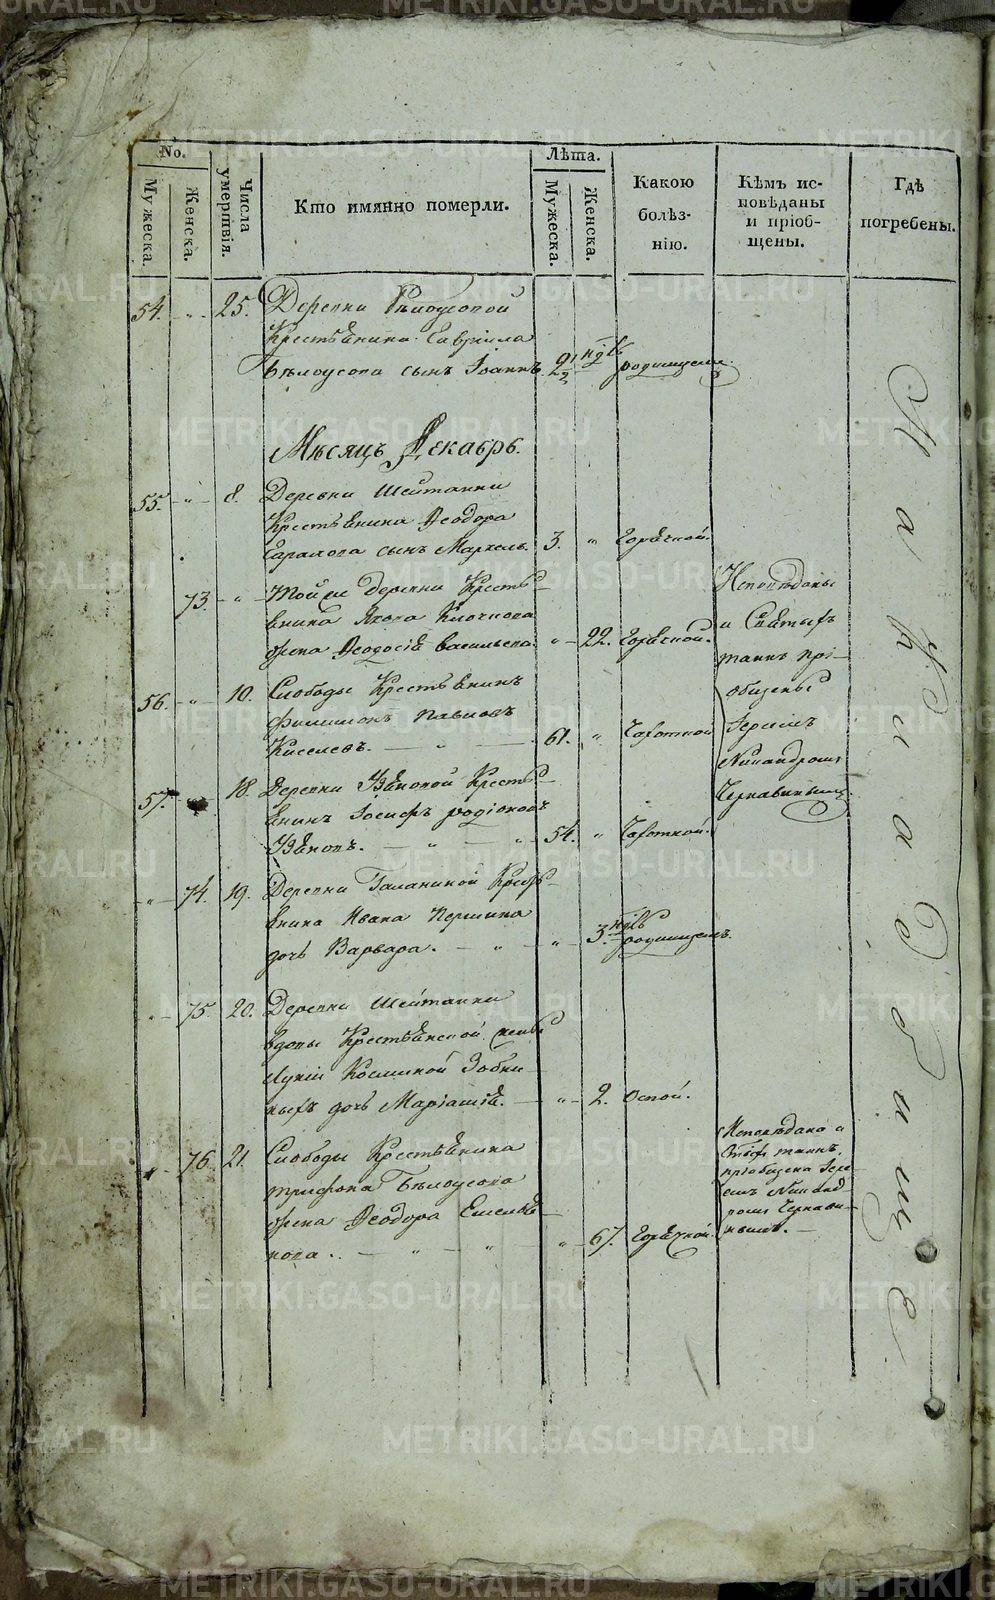 No.
Мужеска.
Женска.
Числа умертвія.
Кто имянно померли.
Лѣта.
Мужеска.
Женска.
Какою болѣз-
нію.
Кѣмъ ис-
повѣданы
и пріоб-
щены.
Гдѣ
погребены.
54. 25. Деревни Бѣлоусовой
Крестьянина Гавріила
Бѣлоусова сынъ Іоаннъ. 2 1/2 ндѣ родимцемъ.
Мѣсяцъ Декабрь.
55. " 8. Деревни Шейтанки
Крестьянина Ѳеодора
сынъ Маркелъ. 3. " Горячкой.
73. " Той же деревни Кресть-
янина Якова Клочкова
жена Ѳеодосія Васильева. " 22. Горячкой.
Исповѣданы
и Святыхъ
таинъ прі-
общены
Іереемъ
Никандромъ
Чернавинымъ.
56. " 10. Слободы Крестьянинъ
Филимонъ Павловъ
Киселевъ. " 61. " Чахоткой
57. 18. Деревни Кресть-
янинъ Іосифъ Родіоновъ
" 54. " Чахоткой.
" 74. 19. Деревни Галаниной Кресть-
янина Ивана Першина
дочь Варвара. " " 3. ндѣ родимцемъ.
" 75. 20. Деревни Шейтанки
вдовы Крестьянской жены
Лукіи Косминой
дочь Маріамія. " 2. Оспой.
" 76. 21. Слободы Крестьянина
Трифона Бѣлоусова
жена Ѳеодора Емелья-
нова. " " " 67. Горячкой.
Исповѣдана и
таинъ
пріобщена Іере-
емъ Никанд-
ромъ Чернави-
нымъ.
На кладбищѣ
METRIKI.GASO-URAL.RU